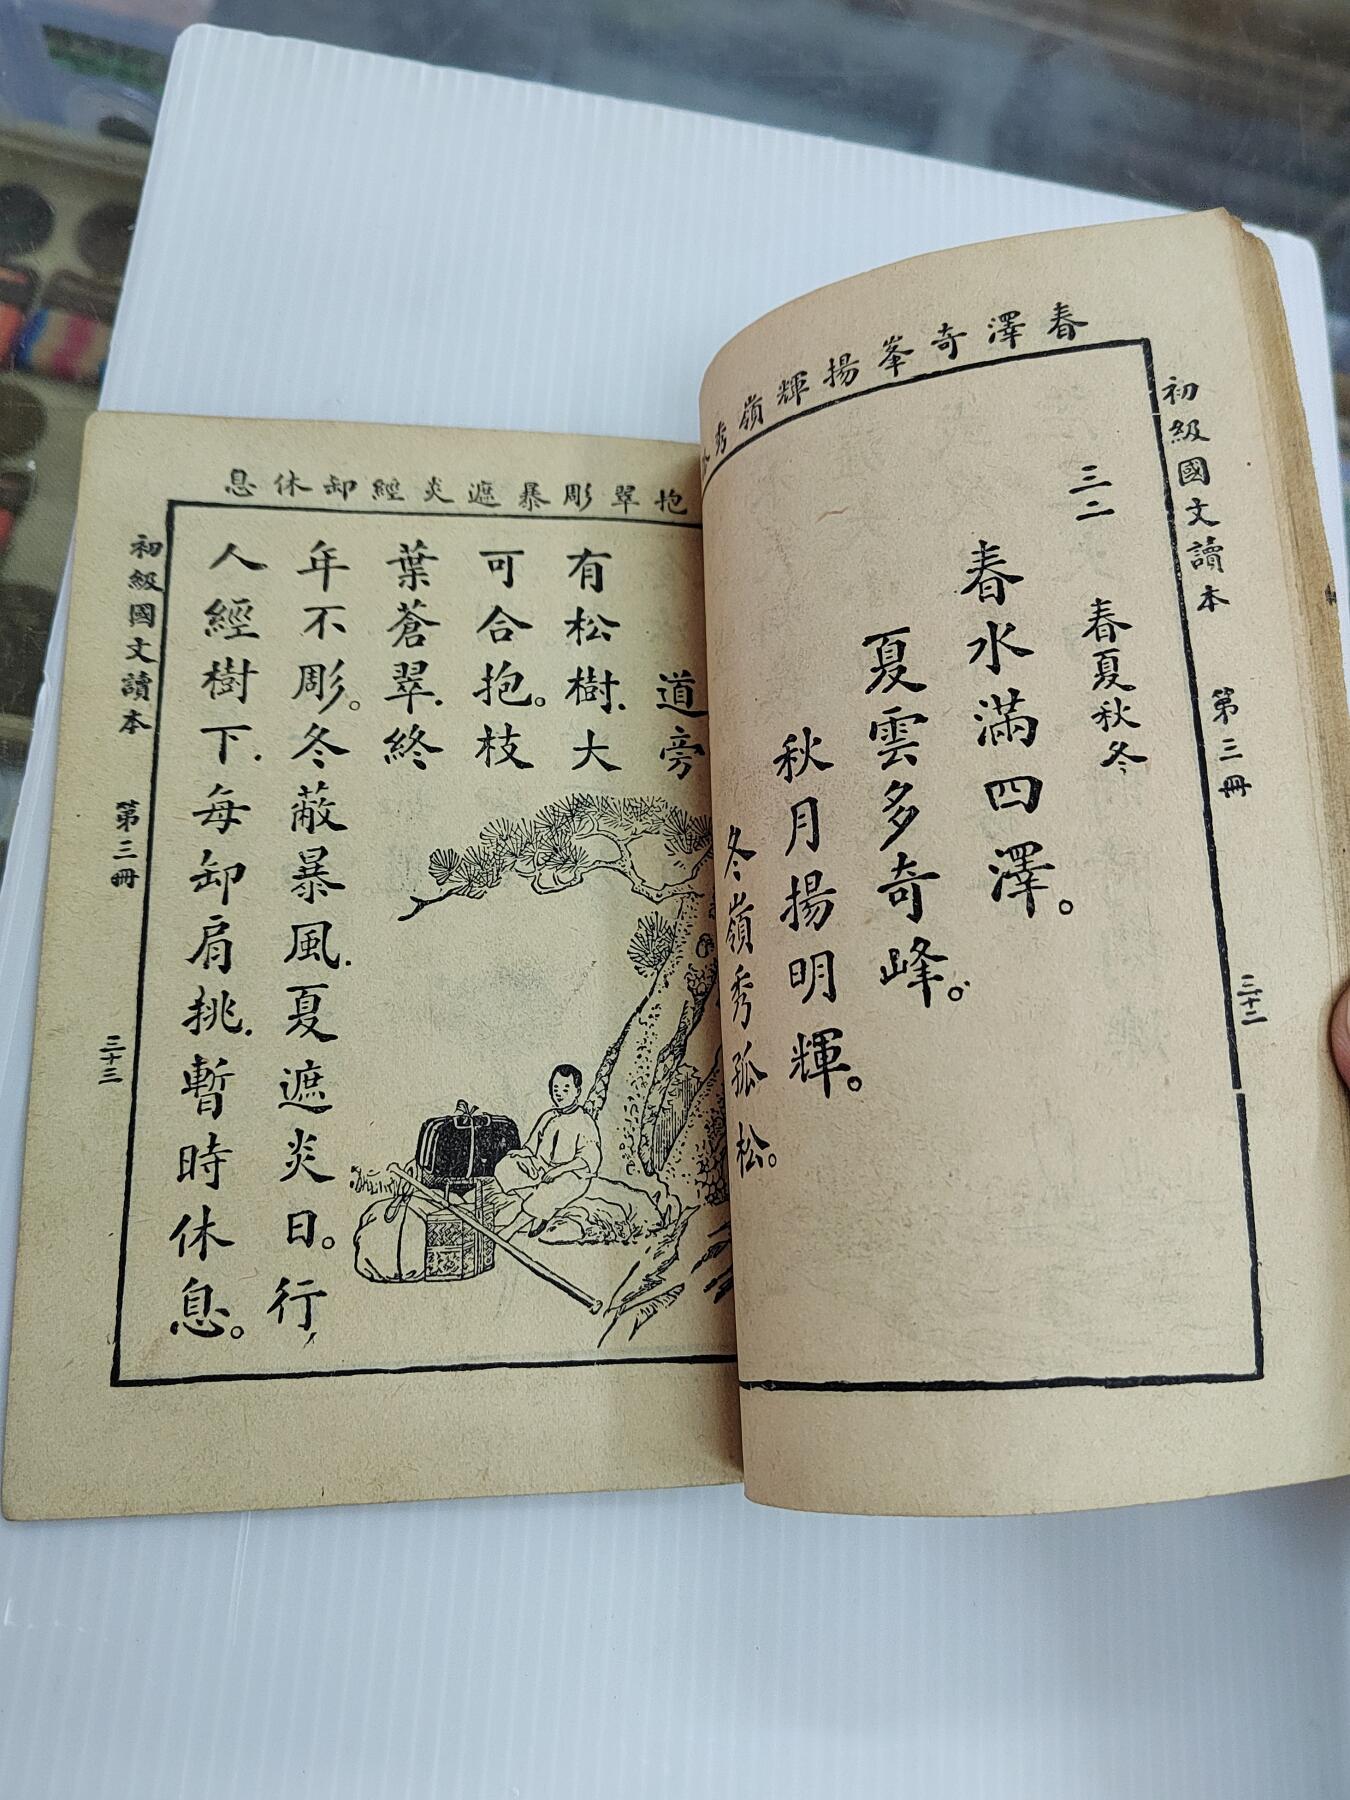 春澤奇峯揚輝嶺秀
初級國文讀本 第三冊 三十二
三二 春夏秋冬
春水滿四澤。
夏雲多奇峰。
秋月揚明輝。
冬嶺秀孤松。
抱翠彫暴遮炎經卸休息
道旁
有松樹.大
可合抱。枝
葉蒼翠.終
年不彫。冬蔽暴風.夏遮炎日。行
人經樹下.每卸肩挑.暫時休息。
初級國文讀本 第三冊 三十三